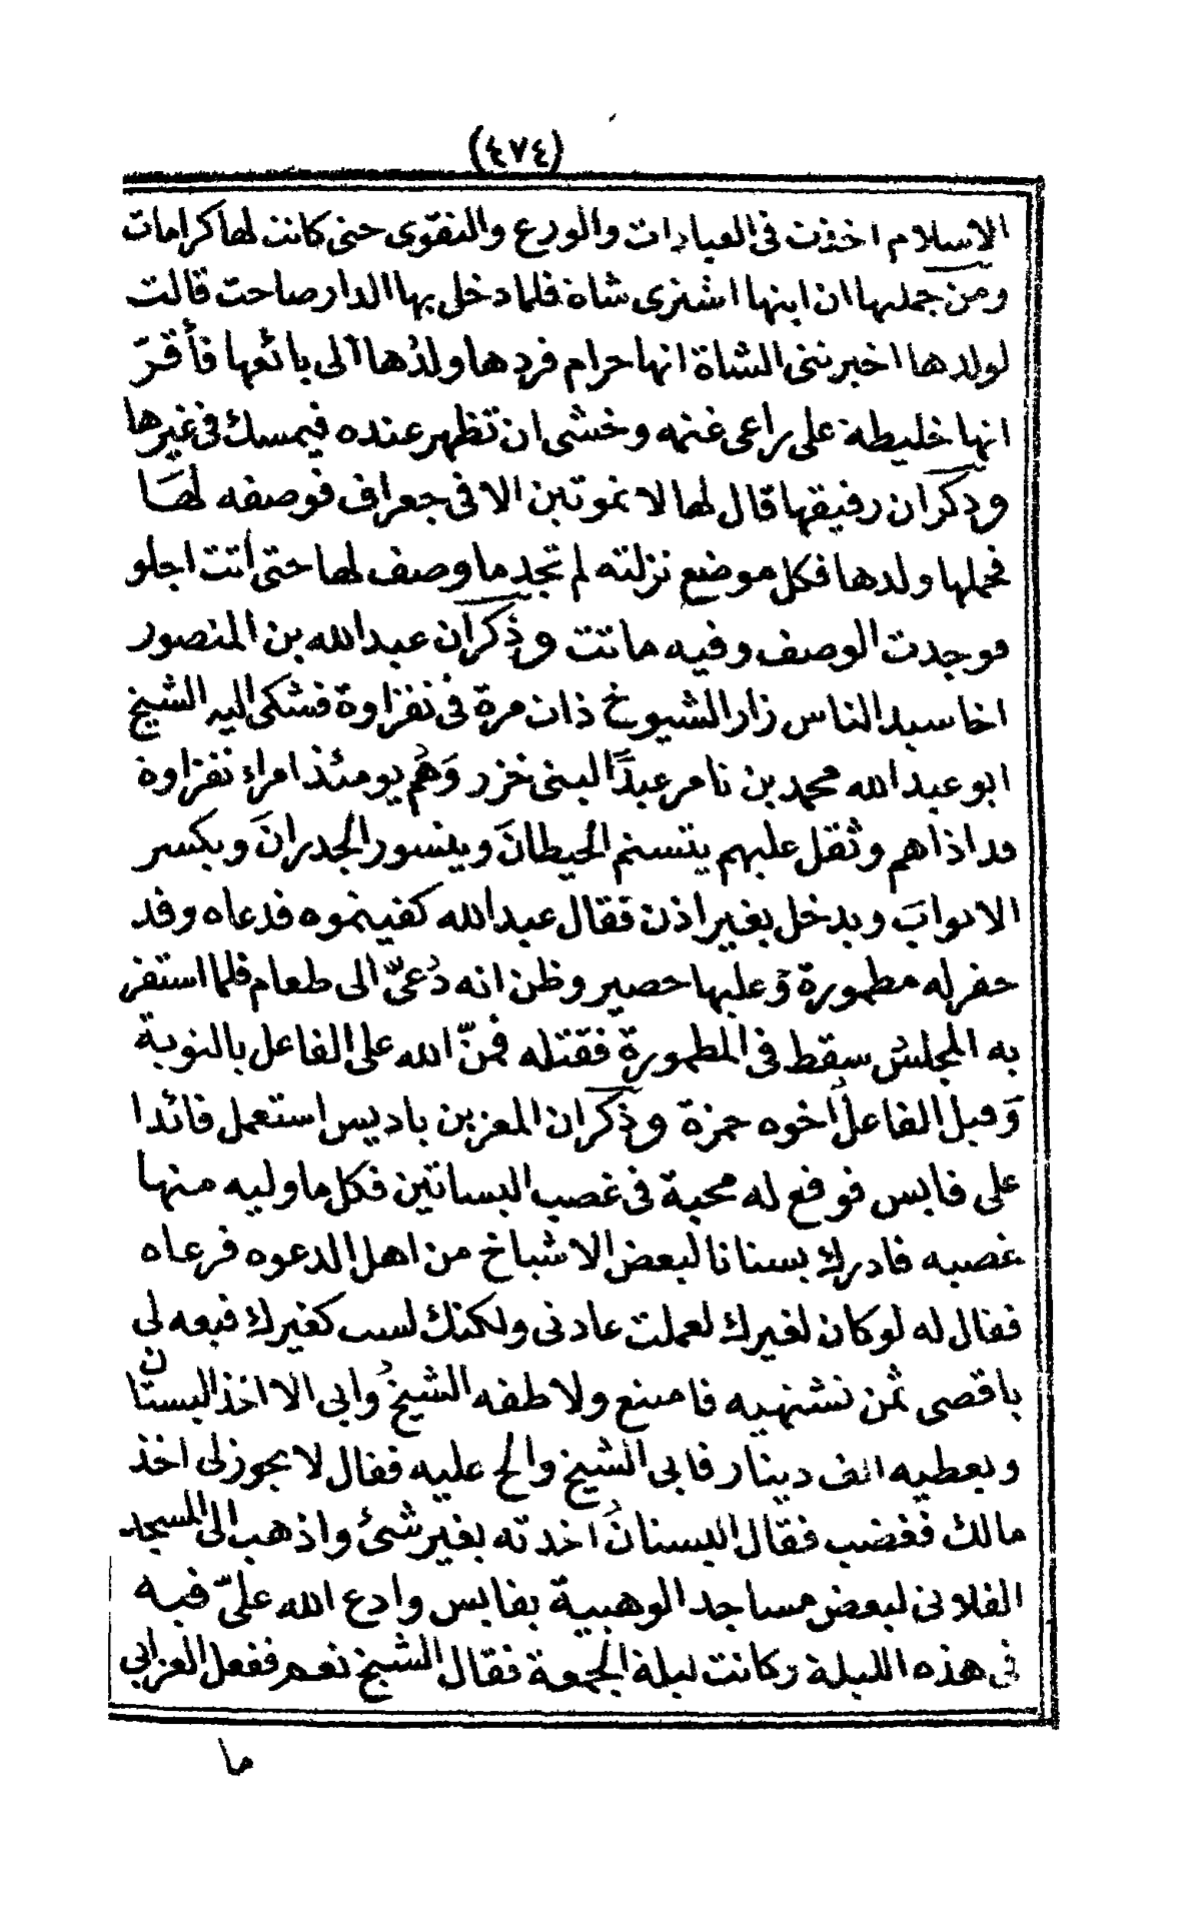 (٤٧٤)
الاسلام اخذت فى العبادات والورع والتقوى حتى كانت لها كرامات
ومن جملتها ان ابنها اشترى شاة فلما دخل بها الدار صاحت قالت
لولدها اخبرتنى الشاة انها حرام فردها ولدُها الى بائعها فأقرّ
انها خليطة على راعى غنمه وخشى ان تظهر عنده فيمسك فى غيرها
وذكر ان رفيقها قال لها لا تموتين الا فى جعراف فوصفه لهَا
فحملها ولدها فكل موضع نزلته لم تجد ما وصف لها حتى أتت اجلو
فوجدت الوصف وفيه ماتت وذكر ان عبد الله بن المنصور
اخا سيد الناس زار الشيوخ ذات مرة فى نفزاوة فشكى اليه الشيخ
ابو عبد الله محمد بن نامر عبدًا لبنى خزر وَهُم يومئذ امراء نفزاوة
قد اذاهم وثقل عليهم يتسنم الحيطانَ ويتسور الجدرانَ ويكسر
الابوابَ ويدخل بغير اذن فقال عبد الله كفيتموه فدعاه وقد
حفر له مطمورة وعليها حصير وظن انه دُعىّ الى طعام فلما استقر
به المجلسُ سقط فى المطمورة فقتله فمنّ الله على الفاعل بالتوبة
وَقيل الفاعلُ اخوه حمزة وذكر ان المعز بن باديس استعمل قائدا
على قابس فوقع له محبة فى غصب البساتين فكل ما وليه منها
غصبه فادرك بستانا لبعض الاشياخ من اهل الدعوه فرعاه
فقال له لو كان لغيرك لعملت عادتى ولكنك لست كغيرك فبعه لى
باقصى ثمن تشتهيه فامتنع ولاطفه الشيخُ وابى الا اخذ البستان
ويعطيه الف دينار فابى الشيخ والح عليه فقال لا يجوز لى اخذ
مالك فغضب فقال البستانُ اخذته بغير شئ واذهب الى المسجد
الفلانى لبعض مساجد الوهبية بقابس وادع الله علىّ فيه
فى هذه الليلة وكانت ليلة الجمعة فقال الشيخ نعم ففعل العزابى
ما